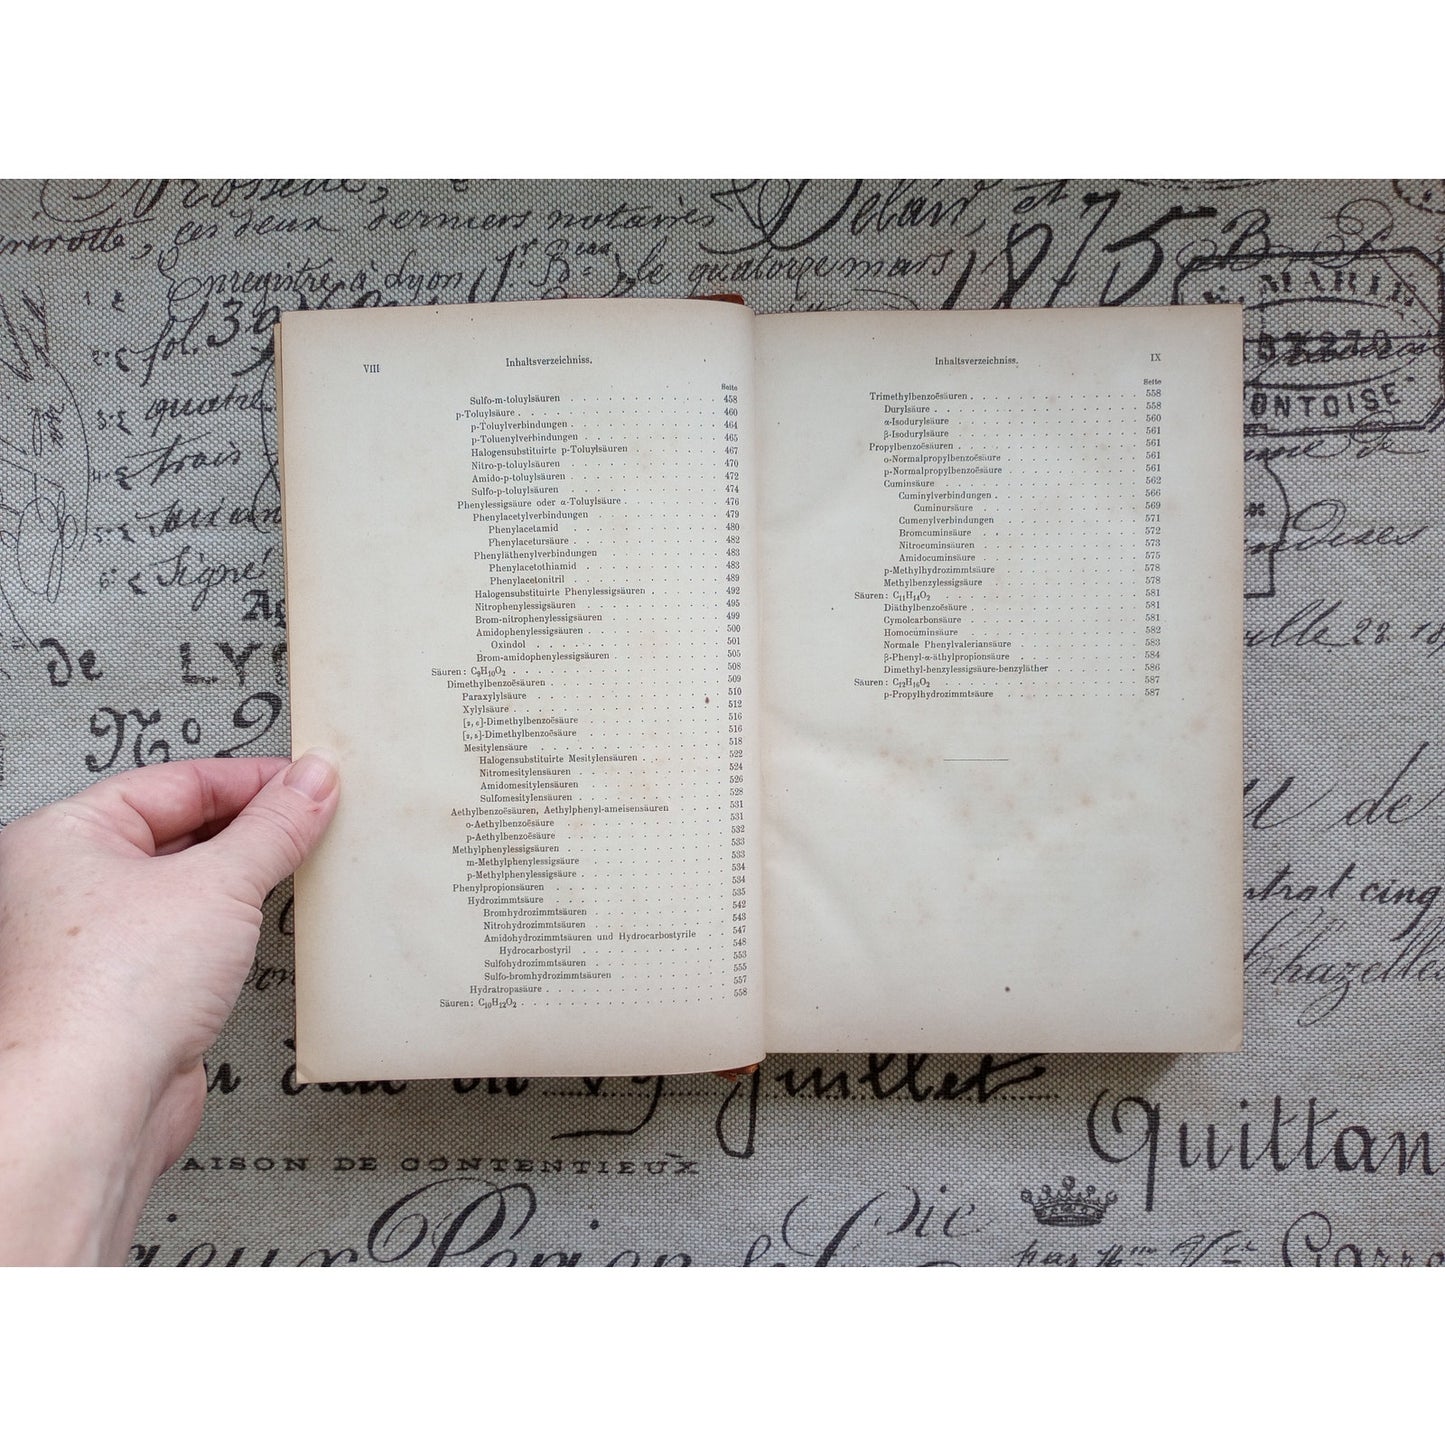 Delair, et
ces deux derniers notaires
Enregistré à Lyon
le quatorze mars 1875
MARIE
fol.
quatre
PONTOISE
trois
Signé
de LYO
No 9
VIII
Inhaltsverzeichniss.
Seite
Sulfo-m-toluylsäuren 458
p-Toluylsäure 460
p-Toluylverbindungen 464
p-Toluenylverbindungen 465
Halogensubstituirte p-Toluylsäuren 467
Nitro-p-toluylsäuren 470
Amido-p-toluylsäuren 472
Sulfo-p-toluylsäuren 474
Phenylessigsäure oder α-Toluylsäure 476
Phenylacetylverbindungen 479
Phenylacetamid 480
Phenylacetursäure 482
Phenyläthenylverbindungen 483
Phenylacetothiamid 483
Phenylacetonitril 489
Halogensubstituirte Phenylessigsäuren 492
Nitrophenylessigsäuren 495
Brom-nitrophenylessigsäuren 499
Amidophenylessigsäuren 500
Oxindol 501
Brom-amidophenylessigsäuren 505
Säuren: C9H10O2 508
Dimethylbenzoësäuren 509
Paraxylylsäure 510
Xylylsäure 512
[2, 6]-Dimethylbenzoësäure 516
[2, 3]-Dimethylbenzoësäure 516
Mesitylensäure 518
Halogensubstituirte Mesitylensäuren 522
Nitromesitylensäuren 524
Amidomesitylensäuren 526
Sulfomesitylensäuren 528
Aethylbenzoësäuren, Aethylphenyl-ameisensäuren 531
o-Aethylbenzoësäure 531
p-Aethylbenzoësäure 532
Methylphenylessigsäuren 533
m-Methylphenylessigsäure 533
p-Methylphenylessigsäure 534
Phenylpropionsäuren 534
Hydrozimmtsäure 535
Bromhydrozimmtsäuren 542
Nitrohydrozimmtsäuren 543
Amidohydrozimmtsäuren und Hydrocarbostyrile 547
Hydrocarbostyril 548
Sulfohydrozimmtsäuren 553
Sulfo-bromhydrozimmtsäuren 555
Hydratropasäure 557
Säuren: C10H12O2 558
Inhaltsverzeichniss.
IX
Seite
Trimethylbenzoësäuren 558
Durylsäure 558
α-Isodurylsäure 560
β-Isodurylsäure 561
Propylbenzoësäuren 561
o-Normalpropylbenzoësäure 561
p-Normalpropylbenzoësäure 561
Cuminsäure 562
Cuminylverbindungen 566
Cuminursäure 569
Cumenylverbindungen 571
Bromcuminsäure 572
Nitrocuminsäuren 573
Amidocuminsäure 575
p-Methylhydrozimmtsäure 578
Methylbenzylessigsäure 578
Säuren: C11H14O2 581
Diäthylbenzoësäure 581
Cymolcarbonsäure 581
Homocuminsäure 582
Normale Phenylvaleriansäure 583
β-Phenyl-α-äthylpropionsäure 584
Dimethyl-benzylessigsäure-benzyläther 586
Säuren: C12H16O2 587
p-Propylhydrozimmtsäure 587
de
cinq
juillet
Quittan
AISON DE CONTENTIEUX